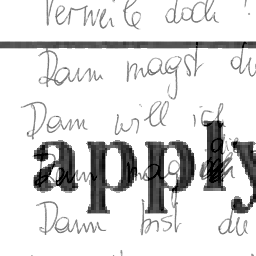 Verweile doch!
Dann magst du
Dann will ich
apply
Dann mag die
Dann bist du